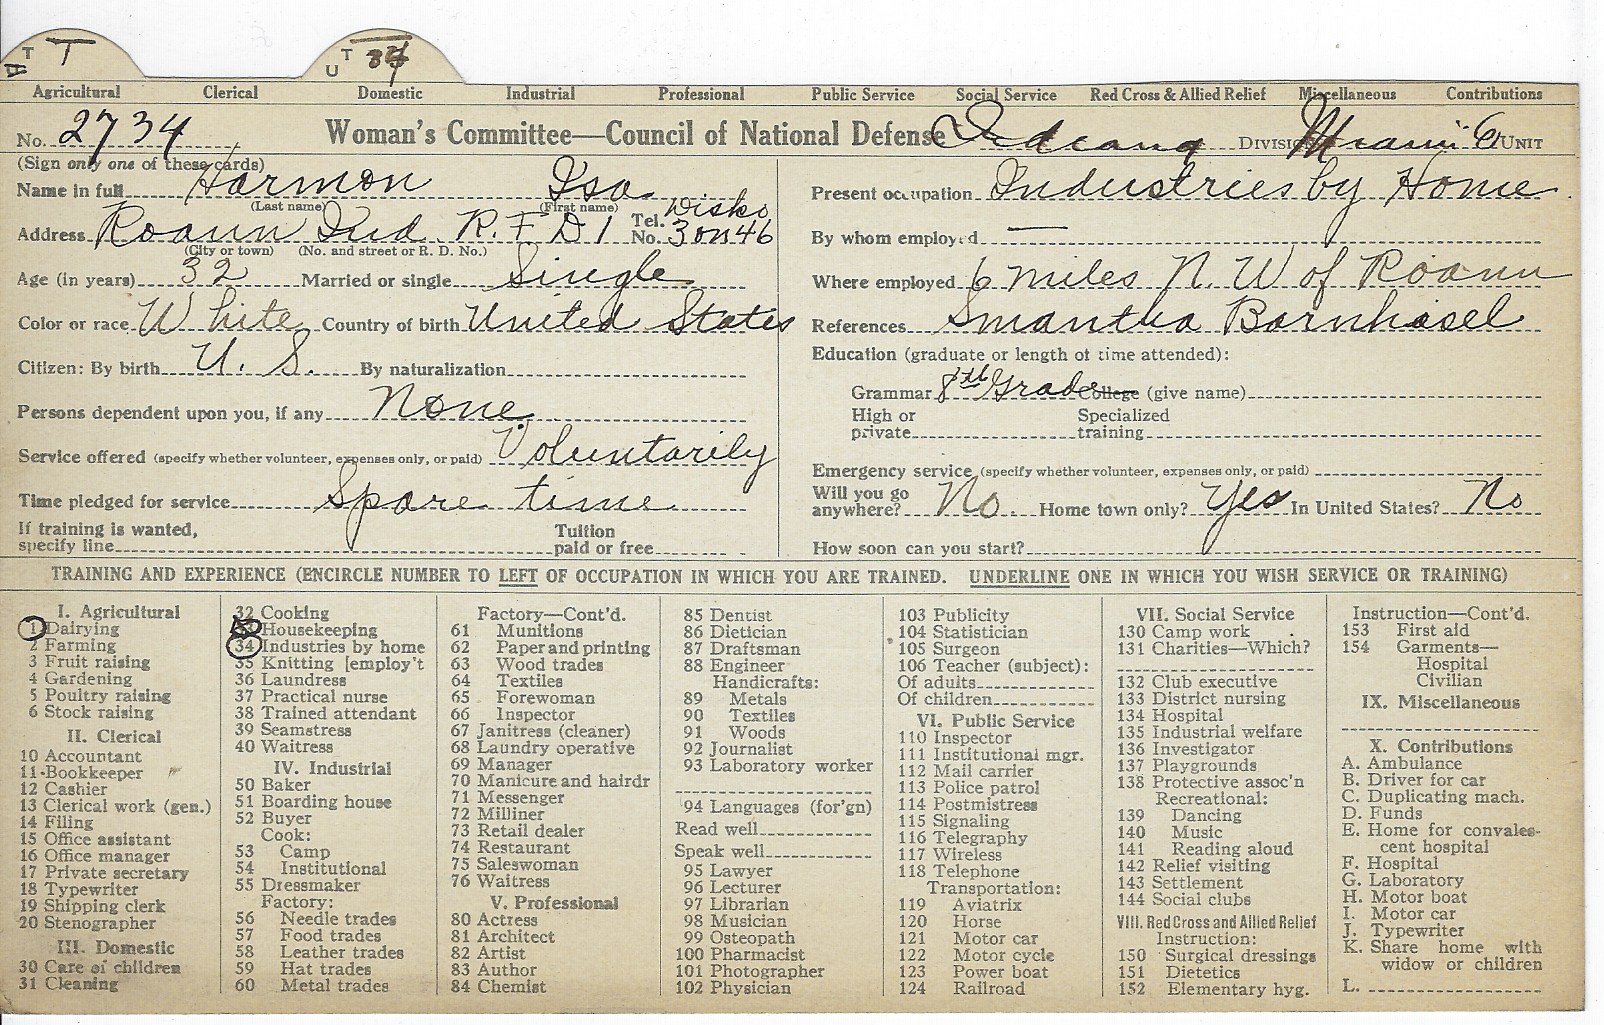 T A T U T 34
Agricultural Clerical Domestic Industrial Professional Public Service Social Service Red Cross & Allied Relief Miscellaneous Contributions
No. 2734 Woman's Committee—Council of National Defense Indiana DIVISION Miami 6 UNIT
(Sign only one of these cards)
Name in full Harmon Isa
(Last name) (First name)
Address Roann Ind R.F D 1 Tel. No. 3 on 46
(City or town) (No. and street or R. D. No.)
Age (in years) 32 Married or single Single
Color or race White Country of birth United States
Citizen: By birth U. S. By naturalization
Persons dependent upon you, if any None
Service offered (specify whether volunteer, expenses only, or paid) Voluntarily
Time pledged for service Spare time
If training is wanted,
specify line Tuition paid or free
Present occupation Industries by Home
By whom employed —
Where employed 6 miles N. W of Roann
References Smantha Barnhisel
Education (graduate or length of time attended):
Grammar 8th Grade College (give name)
High or private Specialized training
Emergency service (specify whether volunteer, expenses only, or paid)
Will you go anywhere? No. Home town only? Yes In United States? No
How soon can you start?
TRAINING AND EXPERIENCE (ENCIRCLE NUMBER TO LEFT OF OCCUPATION IN WHICH YOU ARE TRAINED. UNDERLINE ONE IN WHICH YOU WISH SERVICE OR TRAINING)
I. Agricultural
1 Dairying
2 Farming
3 Fruit raising
4 Gardening
5 Poultry raising
6 Stock raising
II. Clerical
10 Accountant
11 Bookkeeper
12 Cashier
13 Clerical work (gen.)
14 Filing
15 Office assistant
16 Office manager
17 Private secretary
18 Typewriter
19 Shipping clerk
20 Stenographer
III. Domestic
30 Care of children
31 Cleaning
32 Cooking
33 Housekeeping
34 Industries by home
35 Knitting [employ't
36 Laundress
37 Practical nurse
38 Trained attendant
39 Seamstress
40 Waitress
IV. Industrial
50 Baker
51 Boarding house
52 Buyer
Cook:
53 Camp
54 Institutional
55 Dressmaker
Factory:
56 Needle trades
57 Food trades
58 Leather trades
59 Hat trades
60 Metal trades
Factory—Cont'd.
61 Munitions
62 Paper and printing
63 Wood trades
64 Textiles
65 Forewoman
66 Inspector
67 Janitress (cleaner)
68 Laundry operative
69 Manager
70 Manicure and hairdr
71 Messenger
72 Milliner
73 Retail dealer
74 Restaurant
75 Saleswoman
76 Waitress
V. Professional
80 Actress
81 Architect
82 Artist
83 Author
84 Chemist
85 Dentist
86 Dietician
87 Draftsman
88 Engineer
Handicrafts:
89 Metals
90 Textiles
91 Woods
92 Journalist
93 Laboratory worker
94 Languages (for'gn)
Read well
Speak well
95 Lawyer
96 Lecturer
97 Librarian
98 Musician
99 Osteopath
100 Pharmacist
101 Photographer
102 Physician
103 Publicity
104 Statistician
105 Surgeon
106 Teacher (subject):
Of adults
Of children
VI. Public Service
110 Inspector
111 Institutional mgr.
112 Mail carrier
113 Police patrol
114 Postmistress
115 Signaling
116 Telegraphy
117 Wireless
118 Telephone
Transportation:
119 Aviatrix
120 Horse
121 Motor car
122 Motor cycle
123 Power boat
124 Railroad
VII. Social Service
130 Camp work
131 Charities—Which?
132 Club executive
133 District nursing
134 Hospital
135 Industrial welfare
136 Investigator
137 Playgrounds
138 Protective assoc'n
Recreational:
139 Dancing
140 Music
141 Reading aloud
142 Relief visiting
143 Settlement
144 Social clubs
VIII. Red Cross and Allied Relief
Instruction:
150 Surgical dressings
151 Dietetics
152 Elementary hyg.
Instruction—Cont'd.
153 First aid
154 Garments—
Hospital
Civilian
IX. Miscellaneous
X. Contributions
A. Ambulance
B. Driver for car
C. Duplicating mach.
D. Funds
E. Home for convales-
cent hospital
F. Hospital
G. Laboratory
H. Motor boat
I. Motor car
J. Typewriter
K. Share home with
widow or children
L.